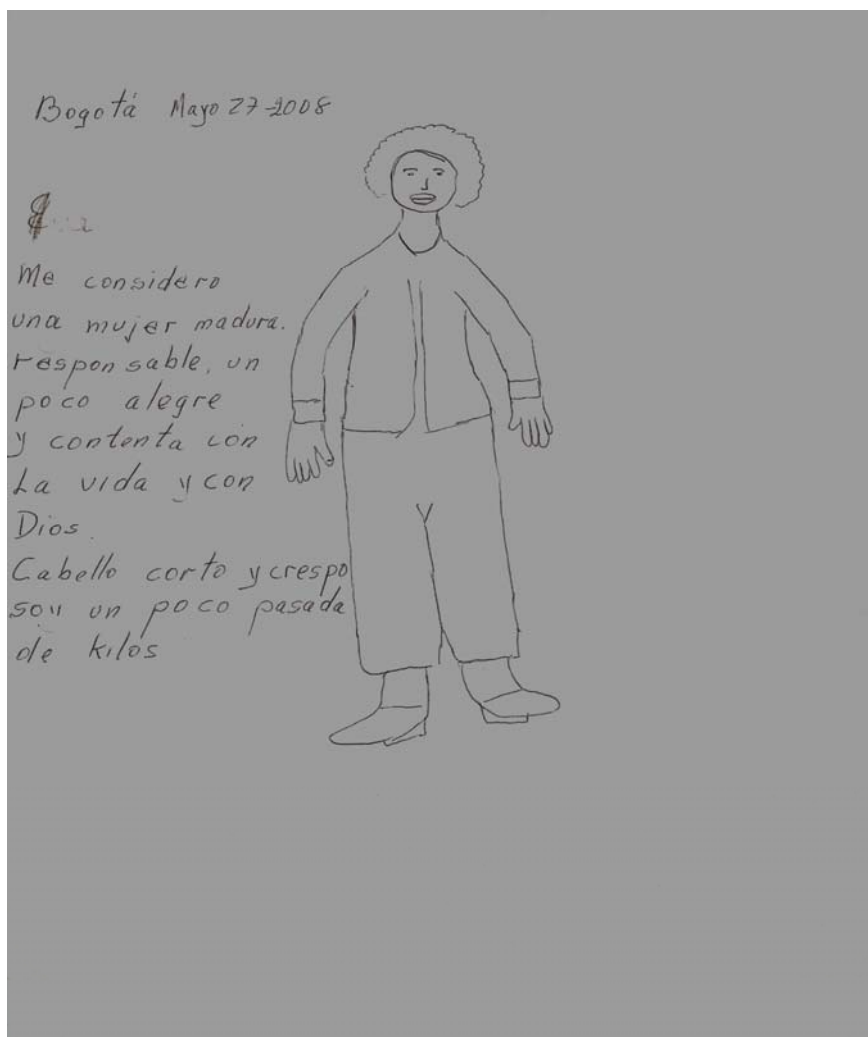 Bogotá Mayo 27-2008
Me considero
una mujer madura.
responsable, un
poco alegre
y contenta con
La vida y con
Dios.
Cabello corto y crespo
soy un poco pasada
de kilos